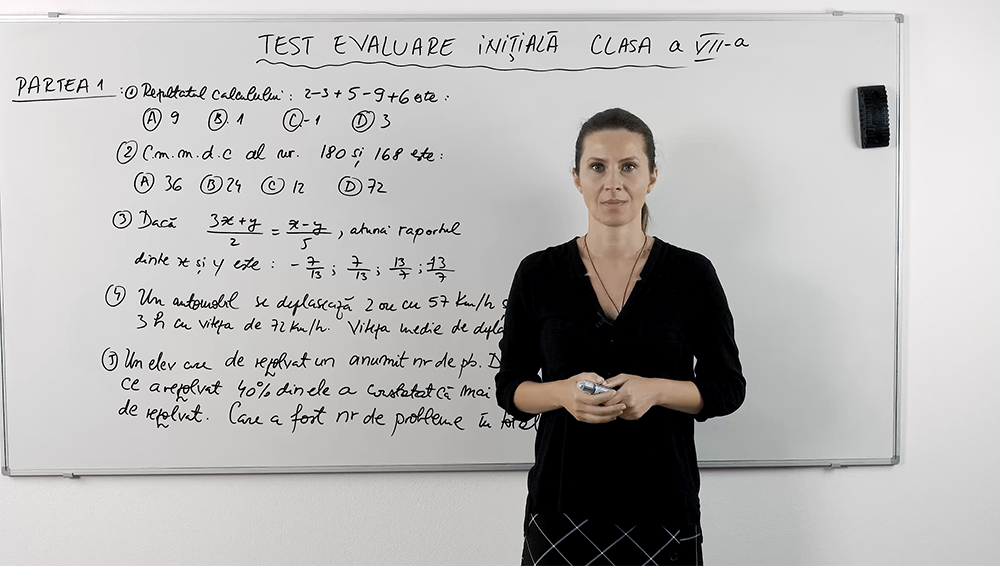 TEST EVALUARE INIȚIALĂ CLASA a VII-a
PARTEA 1 : ① Rezultatul calculului : 2-3+5-9+6 este :
Ⓐ 9 Ⓑ 1 Ⓒ -1 Ⓓ 3
② C.m.m.d.c al nr. 180 și 168 este :
Ⓐ 36 Ⓑ 24 Ⓒ 12 Ⓓ 72
③ Dacă (3x+y)/2 = (x-y)/5 , atunci raportul
dintre x și y este : -7/13 ; 7/13 ; 13/7 ; -13/7
④ Un automobil se deplasează 2 ore cu 57 km/h
3 h cu viteza de 72 km/h. Viteza medie de
⑤ Un elev are de rezolvat un anumit nr de pb.
ce a rezolvat 40% din ele a constatat că mai
de rezolvat. Care a fost nr de probleme în total